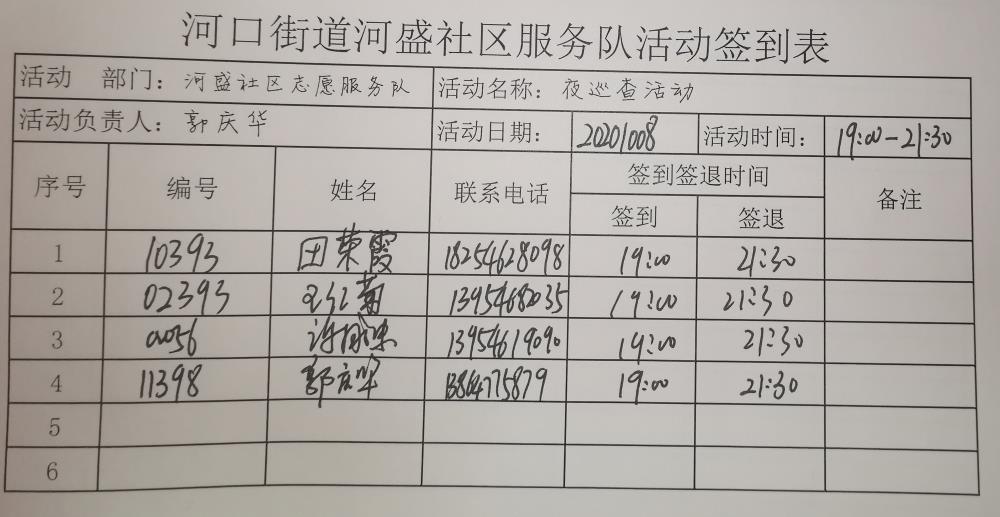 河口街道河盛社区服务队活动签到表
活动 部门：河盛社区志愿服务队 活动名称：夜巡查活动
活动负责人：郭庆华 活动日期：20201008 活动时间：19:00-21:30
序号 编号 姓名 联系电话 签到签退时间 备注
签到 签退
1 10393 田荣霞 18254628098 19:00 21:30
2 02393 13954682035 19:00 21:30
3 13954619090 19:00 21:30
4 11398 郭庆华 13864775879 19:00 21:30
5
6